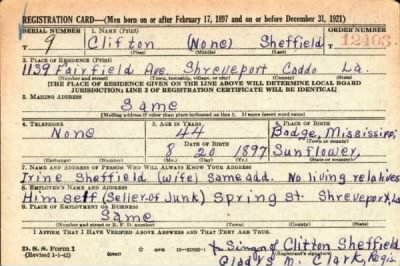 REGISTRATION CARD—(Men born on or after February 17, 1897 and on or before December 31, 1921)
SERIAL NUMBER 1. NAME (Print) ORDER NUMBER
9 Clifton (None) Sheffield 12403
2. PLACE OF RESIDENCE (Print)
1139 Fairfield Ave. Shreveport Caddo La.
(Number and street) (Town, township, village, or city) (County) (State)
[THE PLACE OF RESIDENCE GIVEN ON THE LINE ABOVE WILL DETERMINE LOCAL BOARD
JURISDICTION; LINE 2 OF REGISTRATION CERTIFICATE WILL BE IDENTICAL]
3. MAILING ADDRESS
Same
[Mailing address if other than place indicated on line 2. If same insert word same]
4. TELEPHONE 5. AGE IN YEARS 6. PLACE OF BIRTH
None 44 Mississippi
DATE OF BIRTH (Town or county)
8 20 1897 Sunflower
(Exchange) (Number) (Mo.) (Day) (Yr.) (State or country)
7. NAME AND ADDRESS OF PERSON WHO WILL ALWAYS KNOW YOUR ADDRESS
Irine Sheffield (wife) same add. No living relatives
8. EMPLOYER'S NAME AND ADDRESS
Himself (Seller of Junk) Spring St. Shreveport, La
9. PLACE OF EMPLOYMENT OR BUSINESS
Same
(Number and street or R. F. D. number) (Town) (County) (State)
I AFFIRM THAT I HAVE VERIFIED ABOVE ANSWERS AND THAT THEY ARE TRUE.
D. S. S. Form 1 Sign of Clifton Sheffield
(Revised 1-1-42) (Registrant's signature)
Gladys M. Clark, Regis.